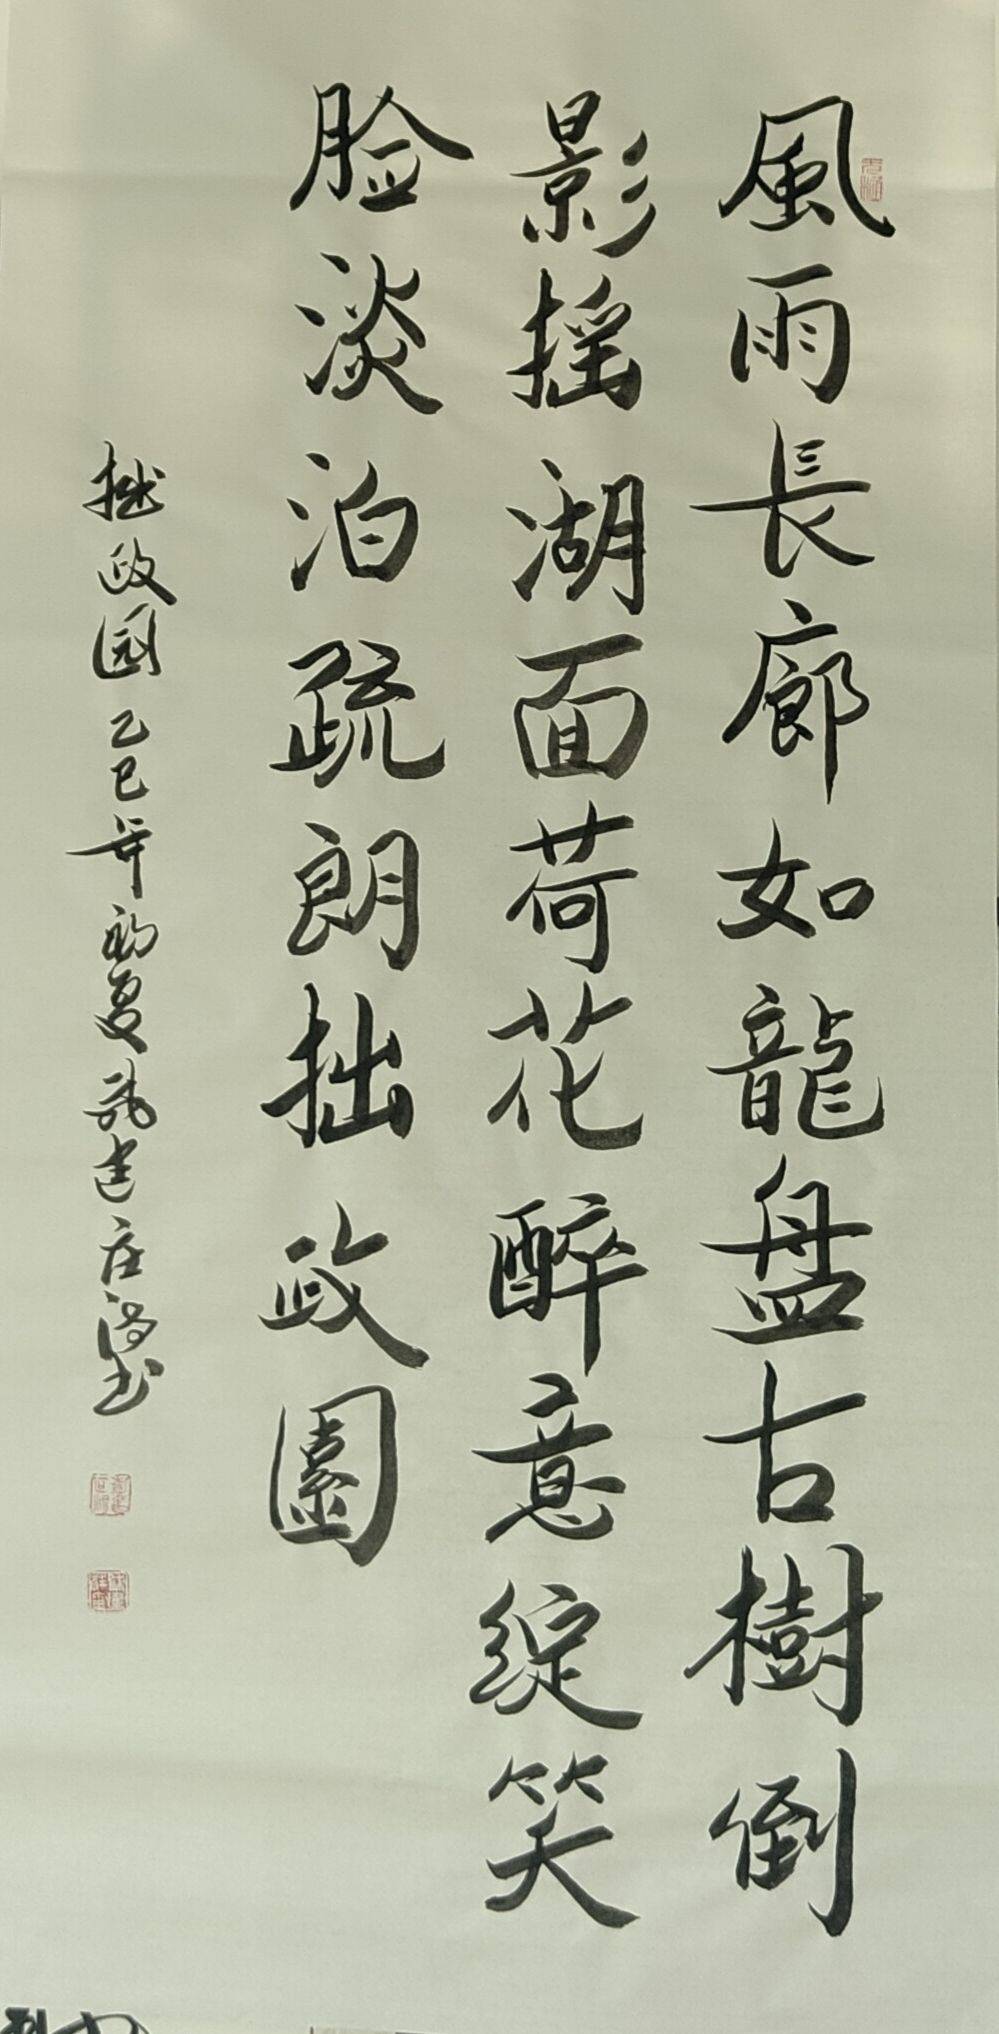 風雨長廊如龍盘古樹倒
影摇湖面荷花醉意綻笑
脸淡泊疏朗拙政園
拙政园乙巳年初夏